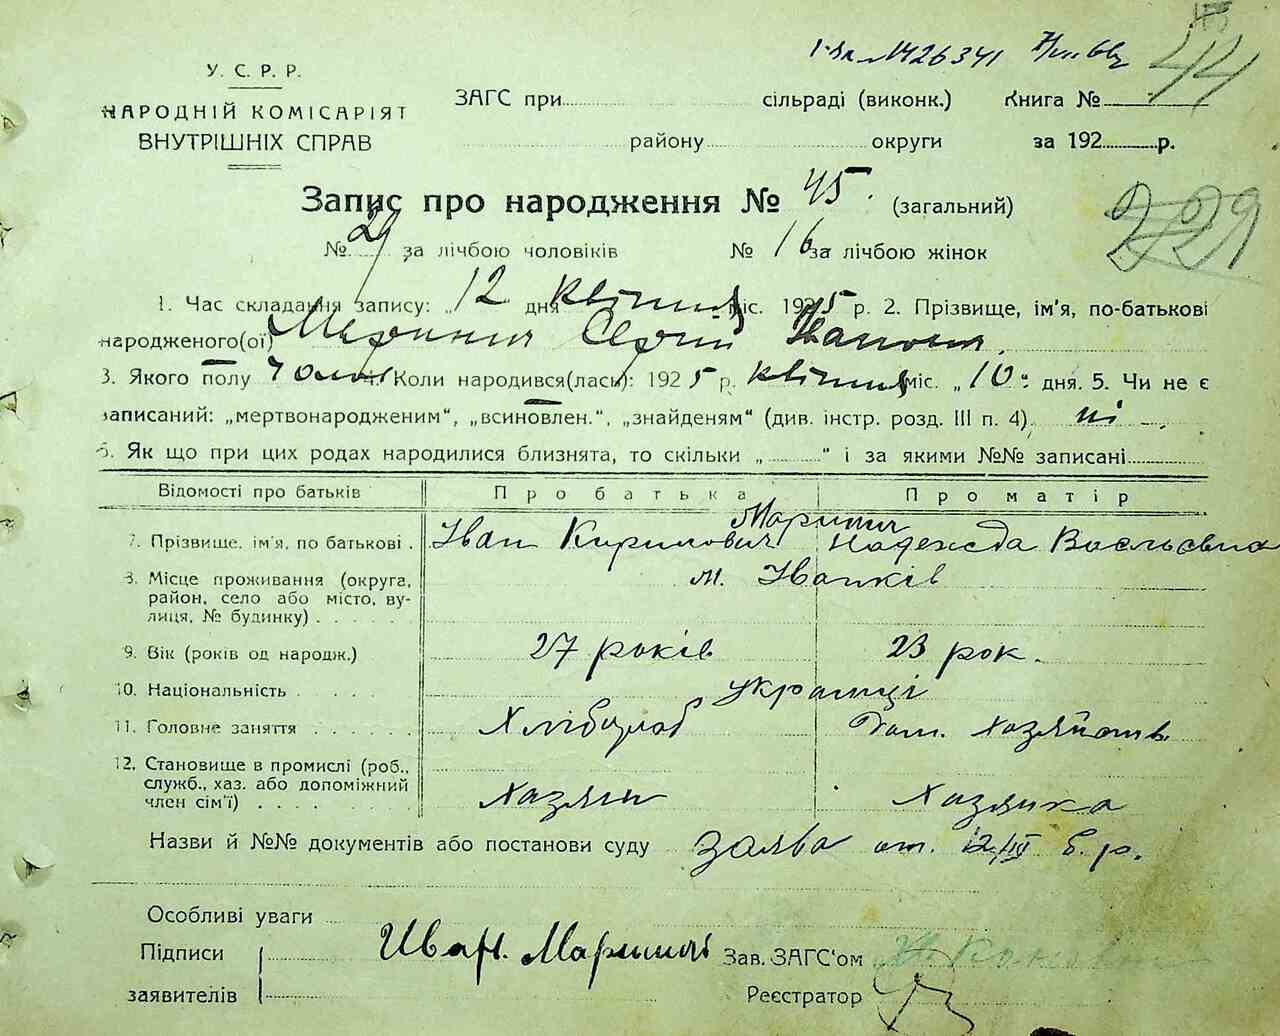 №426341
44
У. С. Р. Р.
НАРОДНІЙ КОМІСАРІЯТ
ВНУТРІШНІХ СПРАВ
ЗАГС при сільраді (виконк.) Книга №
району округи за 192 р.
Запис про народження № 45. (загальний)
№ 29 за лічбою чоловіків № 16 за лічбою жінок
229
1. Час складання запису: „12 дня квітня міс. 1925 р. 2. Прізвище, ім'я, по-батькові
народженого(ої) Сергій
3. Якого полу чолов 4. Коли народився(лась): 1925 р. квітня міс. „10" дня. 5. Чи не є
записаний: „мертвонародженим", „всиновлен.", „знайденям" (див. інстр. розд. III п. 4) ні
6. Як що при цих родах народилися близнята, то скільки „ " і за якими №№ записані
Відомості про батьків Про батька Про матір
7. Прізвище, ім'я, по батькові . Іван Кирилович Надежда Васильевна
8. Місце проживання (округа, м. Іванків
район, село або місто, ву-
лиця, № будинку)
9. Вік (років од народж.) 27 років 23 рок.
10. Національність українці
11. Головне заняття Хлібороб Дом. хазяйств.
12. Становище в промислі (роб.,
служб., хаз. або допоміжний
член сім'ї) хазяин хазяйка
Назви й №№ документів або постанови суду заява от. 12/IV б. р.
Особливі уваги
Підписи Иван. Зав. ЗАГС'ом
заявителів Реєстратор